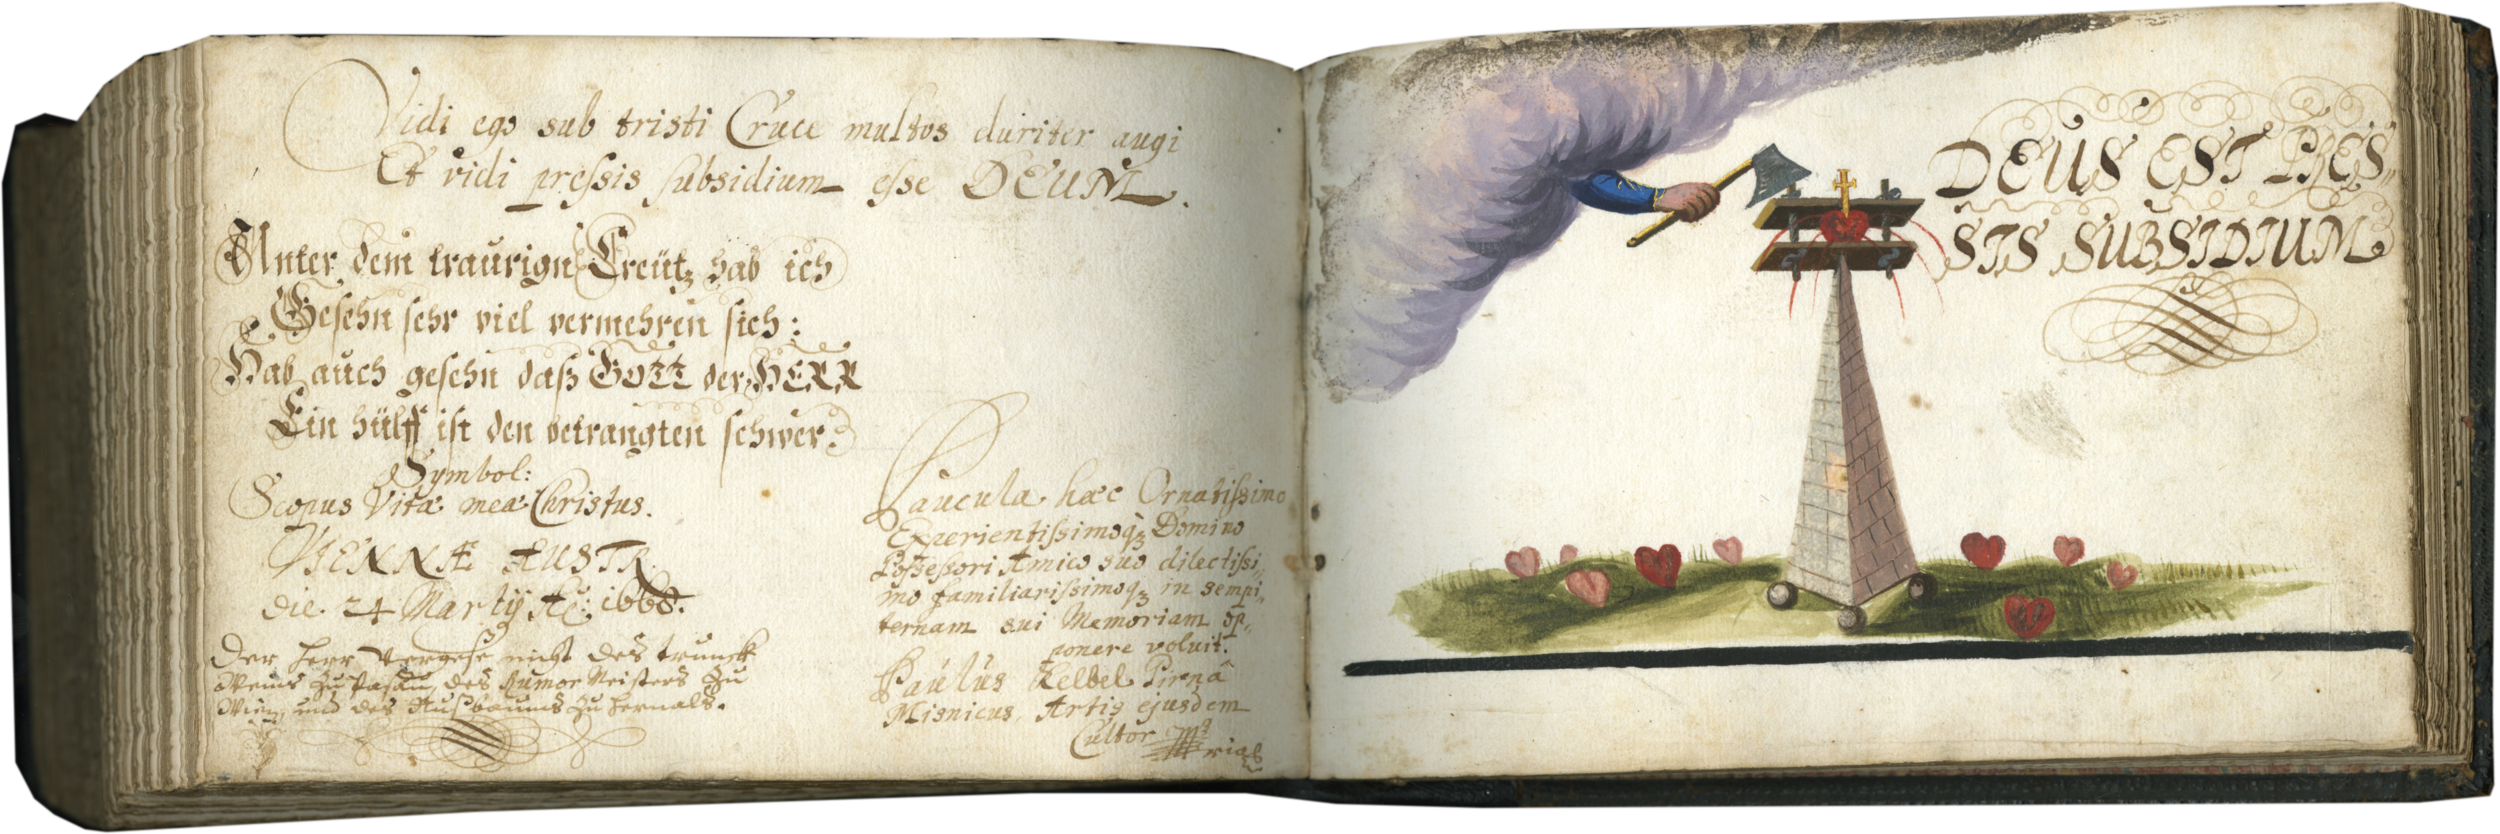 Vidi ego sub tristi Cruce multos duriter augi
Et vidi preſsis ſubsidium eſse DEUM.
Unter dem traurign Creütz hab ich
Geſehn ſehr viel vermehren ſich:
Hab auch geſehn daß GOTT der HERR
Ein hülff iſt den betrangten ſchwer.
Symbol:
Scopus Vitæ meæ Christus.
VIENNÆ AUSTR.
die. 24 Martij Aõ: 1668.
Der Herr Vergeſe nicht des trunckh
Weins Zu Paſau, des Rumor Meisters Zu
Wien, und des Nuſbaums Zu Hernals.
Paucula hæc Ornatiſsimo
Experientiſsimoqꝫ Domino
Poſseſsori Amico suo dilectiſsi„
mo familiariſsimoqꝫ in sempi„
ternam sui Memoriam op„
ponere voluit.
Paulus Kelbel Pirnâ
Misnicus, Artis ejusdem
Cultor
DEUS EST PRES„
SIS SUBSIDIUM